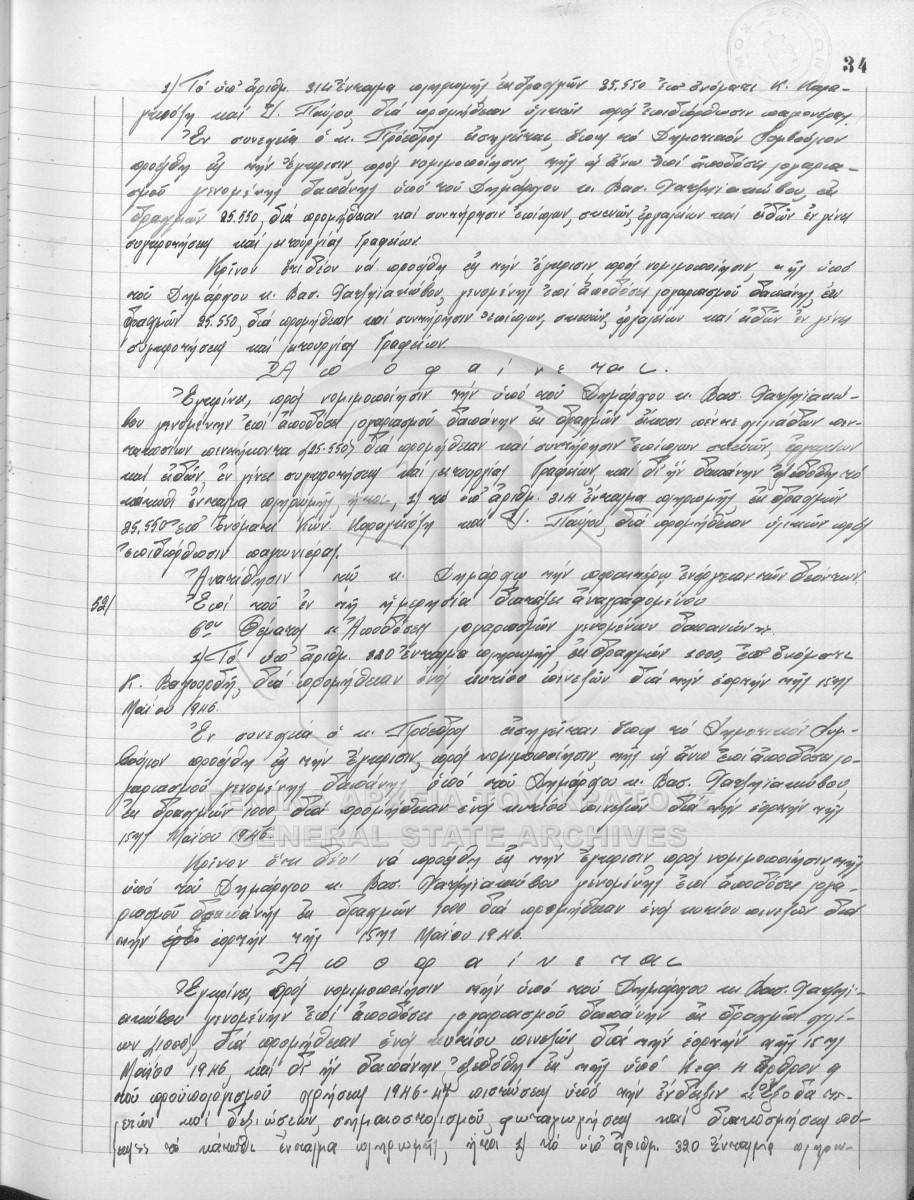 34
1) Τό ὑπ' ἀριθμ. 314 ἔνταλμα πληρωμῆς ἐκ δραχμῶν 25.550 ἐπ' ὀνόματι Κ. Καρα-
γκιόζη καί Παύλου, διά προμήθειαν ὑλικῶν πρός ἐπιδιόρθωσιν παγωνιέρας.
Ἐν συνεχείᾳ ὁ κ. Πρόεδρος εἰσηγεῖται, ὅπως τό Δημοτικόν Συμβούλιον
προέλθῃ εἰς τήν ἔγκρισιν, πρός νομιμοποίησιν, τῆς ὡς ἄνω ἐπί ἀποδόσει λογαρια-
σμοῦ γενομένης δαπάνης ὑπό τοῦ Δημάρχου κ. Βασ. Χατζηϊακώβου, ἐκ
δραχμῶν 25.550, διά προμήθειαν καί συντήρησιν ἐπίπλων, σκευῶν, ἐργαλείων καί εἰδῶν ἐν γένει
συγκροτήσεως καί λειτουργίας Γραφείων.
Κρῖνον ὅτι δέον νά προέλθῃ εἰς τήν ἔγκρισιν πρός νομιμοποίησιν, τῆς ὑπό
τοῦ Δημάρχου κ. Βασ. Χατζηϊακώβου, γενομένης ἐπί ἀποδόσει λογαριασμοῦ δαπάνης ἐκ
δραχμῶν 25.550, διά προμήθειαν καί συντήρησιν ἐπίπλων, σκευῶν, ἐργαλείων καί εἰδῶν ἐν γένει
συγκροτήσεως καί λειτουργίας Γραφείων.
Ἀποφαίνεται.
Ἐγκρίνει, πρός νομιμοποίησιν τήν ὑπό τοῦ Δημάρχου κ. Βασ. Χατζηϊακώ-
βου γενομένην ἐπί ἀποδόσει λογαριασμοῦ δαπάνην ἐκ δραχμῶν εἴκοσι πέντε χιλιάδων πεν-
τακοσίων πεντήκοντα (25.550) διά προμήθειαν καί συντήρησιν ἐπίπλων σκευῶν, ἐργαλείων
καί εἰδῶν ἐν γένει συγκροτήσεως καί λειτουργίας Γραφείων, καί δι' ἥν δαπάνην ἐξεδόθη τό
κάτωθι ἔνταλμα πληρωμῆς, ἤτοι, 1) τό ὑπ' ἀριθμ. 314 ἔνταλμα πληρωμῆς ἐκ δραχμῶν
25.550 ἐπ' ὀνόματι Κων. Καραγκιόζη καί Παύλου, διά προμήθειαν ὑλικῶν πρός
ἐπιδιόρθωσιν παγωνιέρας.
Ἀνατίθησιν τῷ κ. Δημάρχῳ τήν περαιτέρω ἐνέργειαν τῶν δεόντων.
52/ Ἐπί τοῦ ἐν τῇ ἡμερησίᾳ διατάξει ἀναγραφομένου
6ου Θέματος «Ἀποδόσεις λογαριασμῶν γενομένων δαπανῶν».
1) Τό ὑπ' ἀριθμ. 320 ἔνταλμα πληρωμῆς ἐκ δραχμῶν 1000, ἐπ' ὀνόματι
Κ. διά προμήθειαν ἑνός κυτίου πινεζῶν διά τήν ἑορτήν τῆς 15ης
Μαΐου 1946.
Ἐν συνεχείᾳ ὁ κ. Πρόεδρος εἰσηγεῖται ὅπως τό Δημοτικόν Συμ-
βούλιον προέλθῃ εἰς τήν ἔγκρισιν, πρός νομιμοποίησιν, τῆς ὡς ἄνω ἐπί ἀποδόσει λο-
γαριασμοῦ γενομένης δαπάνης ὑπό τοῦ Δημάρχου κ. Βασ. Χατζηϊακώβου,
ἐκ δραχμῶν 1000, διά προμήθειαν ἑνός κυτίου πινεζῶν διά τήν ἑορτήν τῆς
15ης Μαΐου 1946.
Κρῖνον ὅτι δέον νά προέλθῃ εἰς τήν ἔγκρισιν πρός νομιμοποίησιν τῆς
ὑπό τοῦ Δημάρχου κ. Βασ. Χατζηϊακώβου γενομένης ἐπί ἀποδόσει λογα-
ριασμοῦ δαπάνης ἐκ δραχμῶν 1000 διά προμήθειαν ἑνός κυτίου πινεζῶν διά
τήν ἑορτήν τῆς 15ης Μαΐου 1946.
Ἀποφαίνεται
Ἐγκρίνει, πρός νομιμοποίησιν τήν ὑπό τοῦ Δημάρχου κ. Βασ. Χατζηϊ-
ακώβου γενομένην ἐπί ἀποδόσει λογαριασμοῦ δαπάνην ἐκ δραχμῶν χιλί-
ων 1000, διά προμήθειαν ἑνός κυτίου πινεζῶν διά τήν ἑορτήν τῆς 15ης
Μαΐου 1946 καί δι' ἥν δαπάνην ἐξεδόθη ἐκ τῆς ὑπό Κεφ. Η ἄρθρον 9
τοῦ προϋπολογισμοῦ χρήσεως 1946-47 πιστώσεως ὑπό τήν ἔνδειξιν «Ἔξοδα τε-
λετῶν καί δεξιώσεων, σημαιοστολισμοῦ, φωταγωγήσεως καί διακοσμήσεως πό-
λεως» τό κάτωθι ἔνταλμα πληρωμῆς, ἤτοι 1) τό ὑπ' ἀριθμ. 320 ἔνταλμα πληρω-
ΓΕΝΙΚΑ ΑΡΧΕΙΑ ΤΟΥ ΚΡΑΤΟΥΣ
GENERAL STATE ARCHIVES